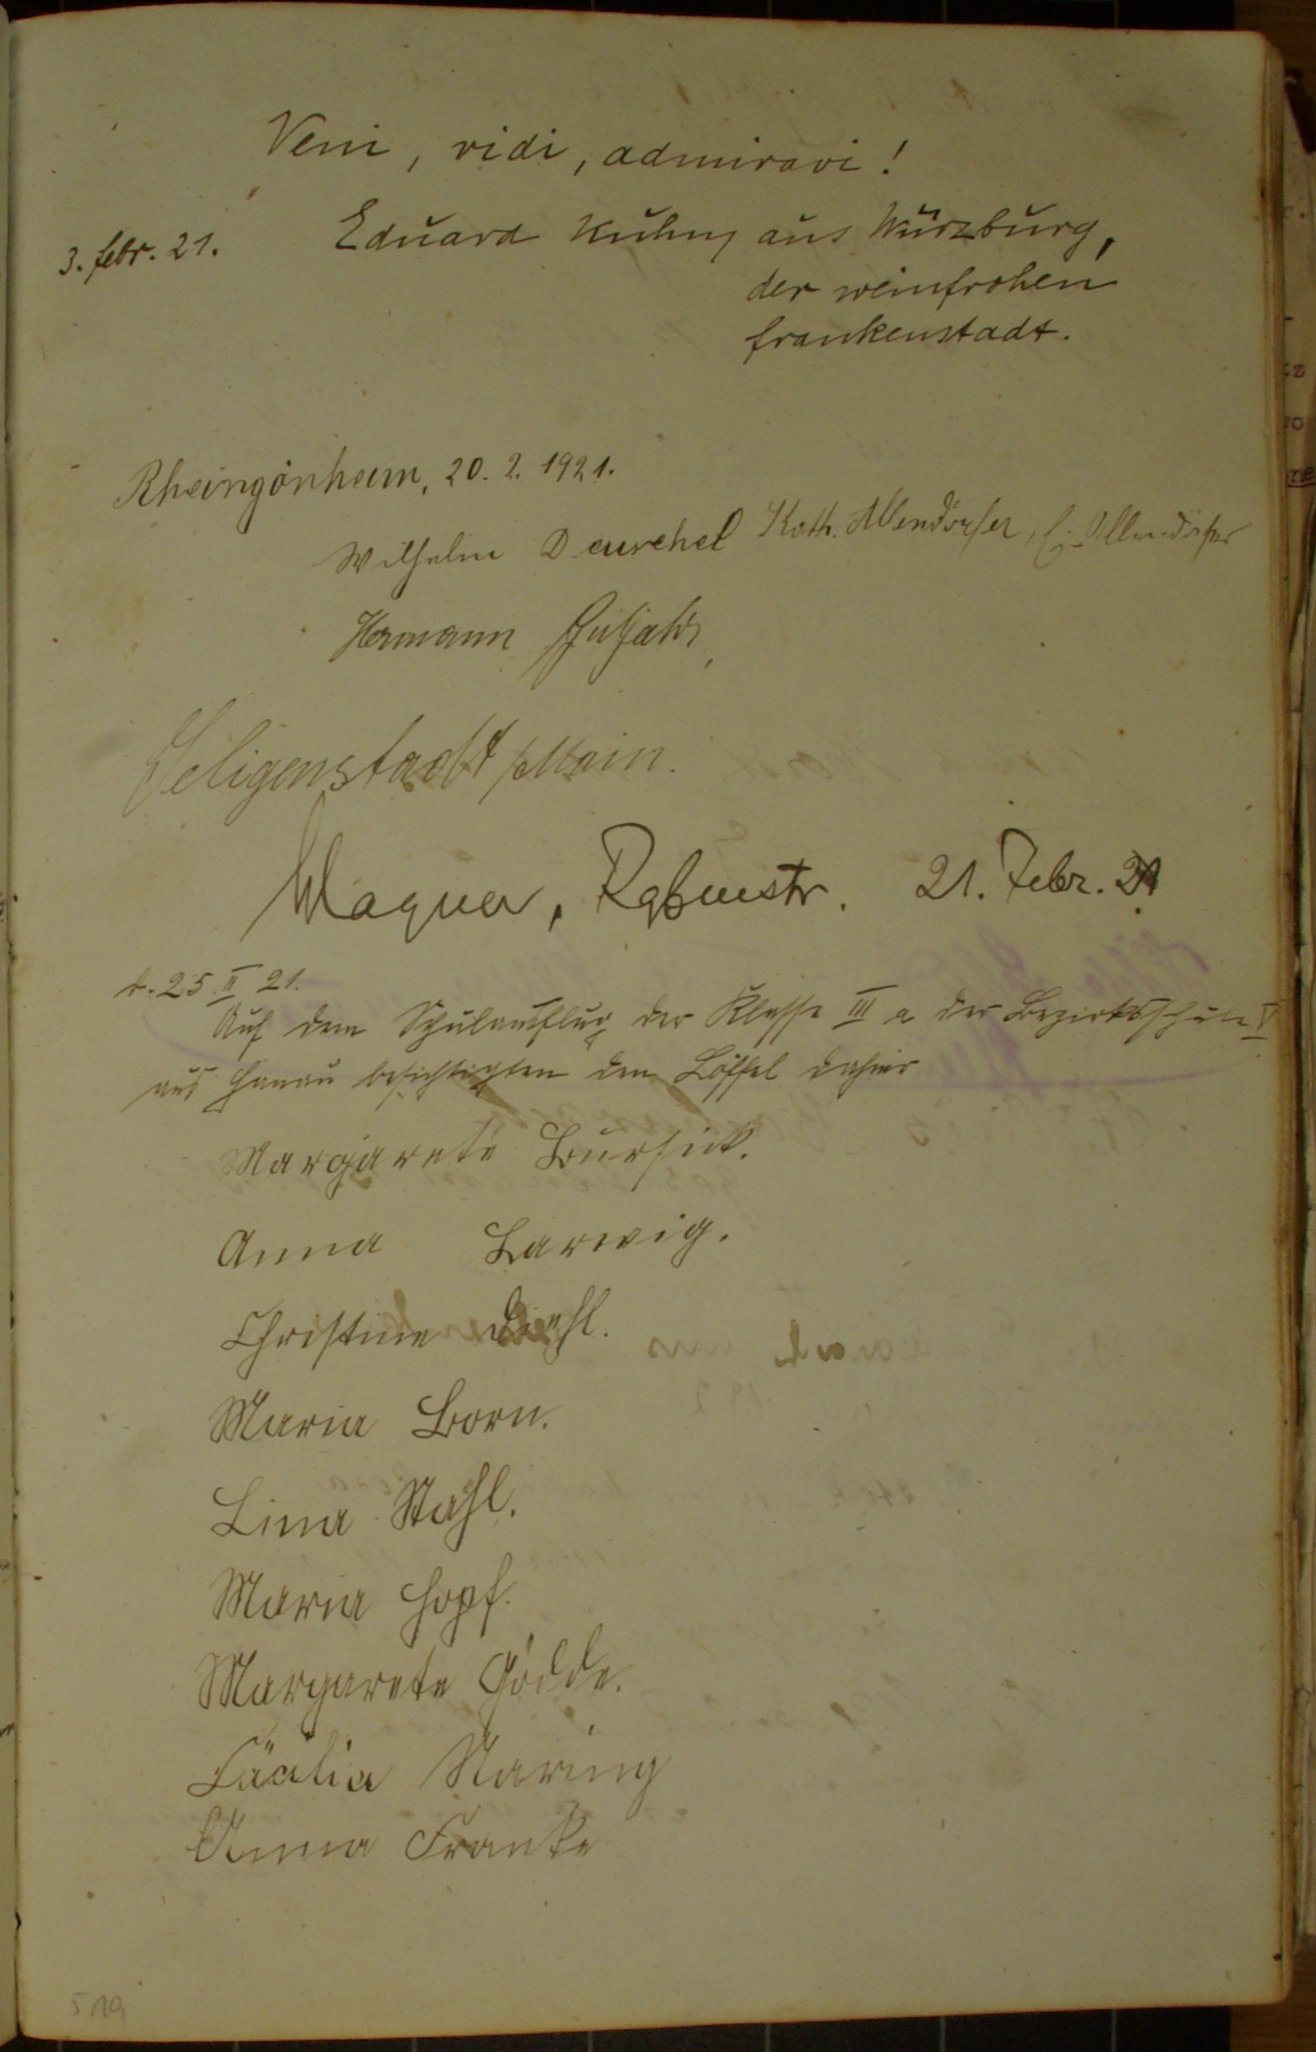 Veni, vidi, admiravi!
3. Febr. 21. Eduard Kuhn aus Würzburg,
der weinfrohen
Frankenstadt.
Rheingönheim, 20. 2. 1921.
Wilhelm Kath. Allendörfer, Allendörfer
Hermann Gutjahr,
Seligenstadt /Main.
Wagner, Rgbmstr. 21. Febr. 21
d. 25. II 21.
Auf dem Schulausflug der Klasse III a der Bezirksschule V
aus Hanau besichtigten den Löffel dahier
Margarete
Anna Larwig.
Christine Diehl.
Maria Born.
Lina Stahl.
Maria Hopf.
Margarete Gödde.
Cäcilia Naring
Anna Franke
519